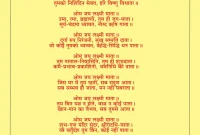 तुमको निशिदिन सेवत, हरि विष्णु विधाता॥
ओम जय लक्ष्मी माता॥
उमा, रमा, ब्रह्माणी, तुम ही जग-माता।
सूर्य-चंद्रमा ध्यावत, नारद ऋषि गाता॥
ओम जय लक्ष्मी माता॥
दुर्गा रूप निरंजनी, सुख सम्पत्ति दाता।
जो कोई तुमको ध्यावत, ऋद्धि-सिद्धि धन पाता॥
ओम जय लक्ष्मी माता॥
तुम पाताल-निवासिनि, तुम ही शुभदाता।
कर्म-प्रभाव-प्रकाशिनी, भवनिधि की त्राता॥
ओम जय लक्ष्मी माता॥
जिस घर में तुम रहतीं, सब सद्गुण आता।
सब सम्भव हो जाता, मन नहीं घबराता॥
ओम जय लक्ष्मी माता॥
तुम बिन यज्ञ न होते, वस्त्र न कोई पाता।
खान-पान का वैभव, सब तुमसे आता॥
ओम जय लक्ष्मी माता॥
शुभ-गुण मंदिर सुंदर, क्षीरोदधि-जाता।
रत्न चतुर्दश तुम बिन, कोई नहीं पाता॥